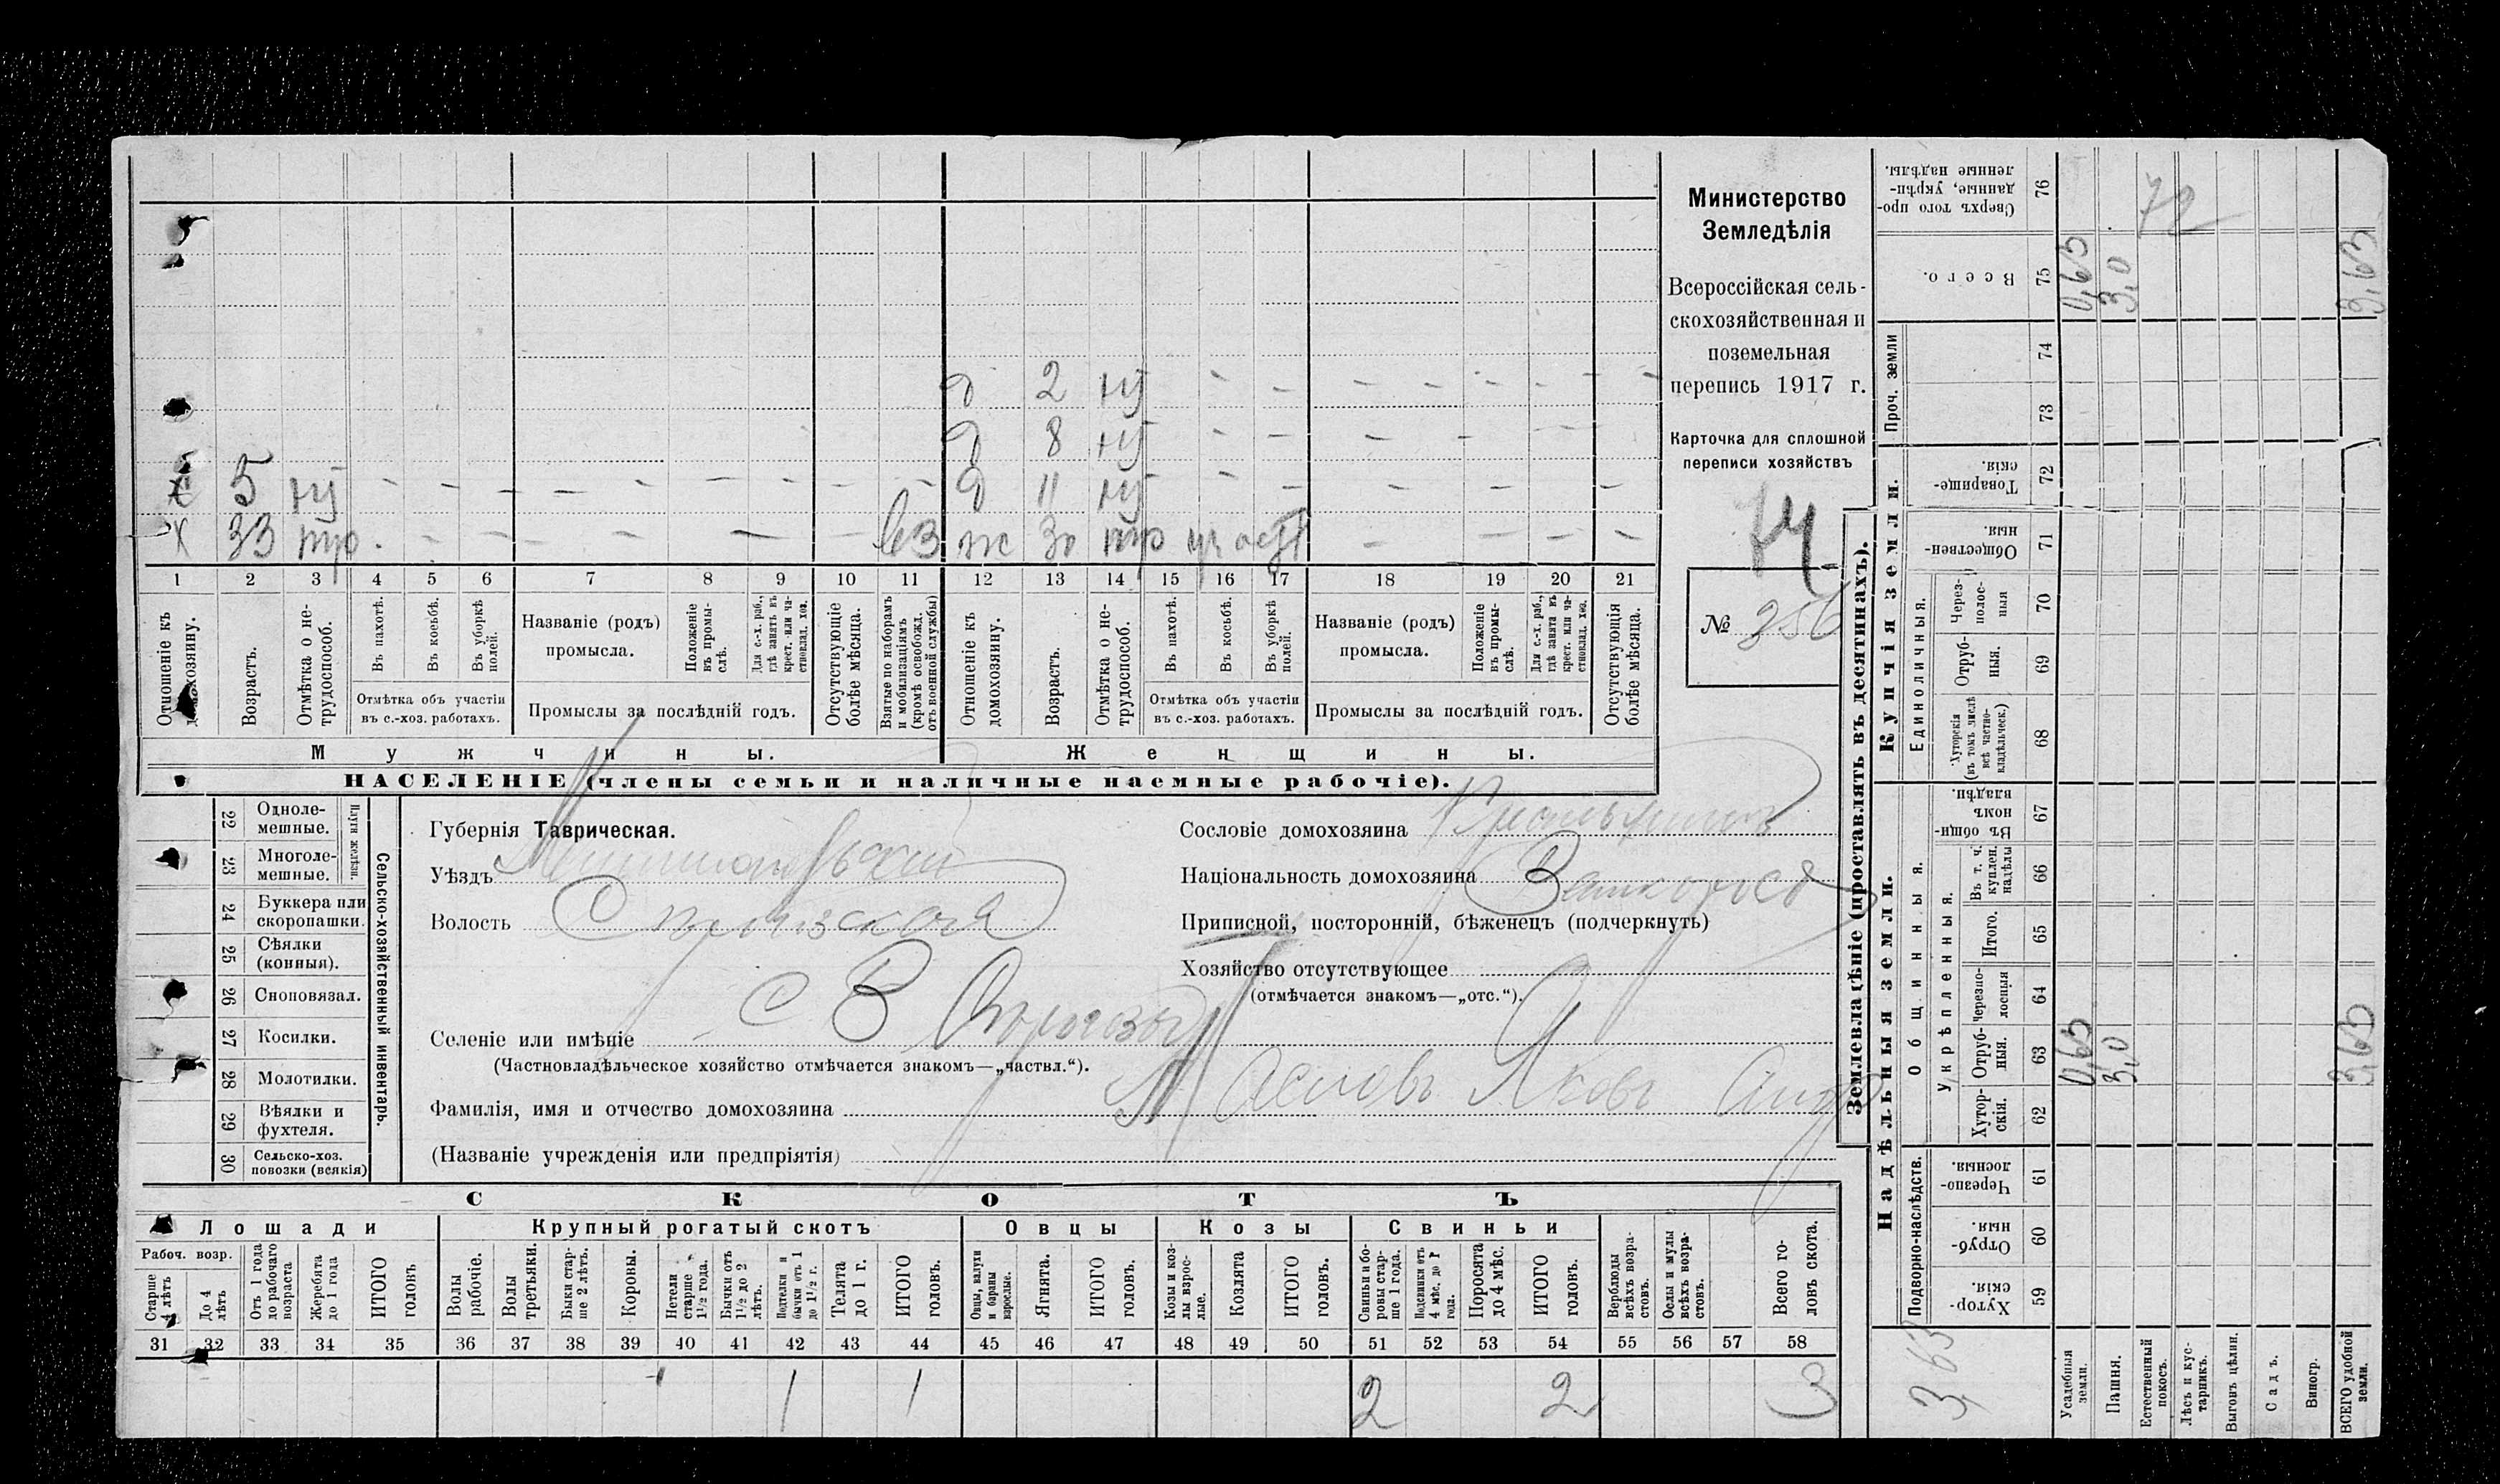 Министерство
Земледѣлія
Всероссійская сель-
скохозяйственная и
поземельная
перепись 1917 г.
Карточка для сплошной
переписи хозяйствъ
74
№ 356
д 2 ну - - - - - - - -
д 8 ну - - - - -
5 ну - - - - - - - - д 11 ну - - - - -
х 33 тр. - - - - - - - вз ж 30 тр - - - -
1 2 3 4 5 6 7 8 9 10 11 12 13 14 15 16 17 18 19 20 21
Отношеніе къ домохозяину.
Возрастъ.
Отмѣтка о не-
трудоспособ.
Въ пахотѣ.
Въ косьбѣ.
Въ уборкѣ
полей.
Отмѣтка объ участіи
въ с.-хоз. работахъ.
Названіе (родъ)
промысла.
Положеніе
въ промы-
слѣ.
Для с.-х. раб.,
гдѣ занятъ въ
крест. или ча-
стновлад. хоз.
Промыслы за послѣдній годъ.
Отсутствующіе
болѣе мѣсяца.
Взятые по наборамъ
и мобилизаціямъ
(кромѣ освобожд.
отъ военной службы)
Отношеніе къ
домохозяину.
Возрастъ.
Отмѣтка о не-
трудоспособ.
Въ пахотѣ.
Въ косьбѣ.
Въ уборкѣ
полей.
Отмѣтка объ участіи
въ с.-хоз. работахъ.
Названіе (родъ)
промысла.
Положеніе
въ промы-
слѣ.
Для с.-х. раб.,
гдѣ занята въ
крест. или ча-
стновлад. хоз.
Промыслы за послѣдній годъ.
Отсутствующія
болѣе мѣсяца.
Мужчины.
Женщины.
НАСЕЛЕНІЕ (члены семьи и наличные наемные рабочіе).
Сельско-хозяйственный инвентарь.
Плуги желѣзн.
22 Одноле-
мешные.
23 Многоле-
мешные.
24 Буккера или
скоропашки.
25 Сѣялки
(конныя).
26 Сноповязал.
27 Косилки.
28 Молотилки.
29 Вѣялки и
фухтеля.
30 Сельско-хоз.
повозки (всякія)
Губернія Таврическая.
Уѣздъ
Волость
Селеніе или имѣніе С В
(Частновладѣльческое хозяйство отмѣчается знакомъ—„частвл.“).
Фамилія, имя и отчество домохозяина Масловъ Яковъ Андр
(Названіе учрежденія или предпріятія)
Сословіе домохозяина
Національность домохозяина Великоросс
Приписной, посторонній, бѣженецъ (подчеркнуть)
Хозяйство отсутствующее
(отмѣчается знакомъ—„отс.“).
СКОТЪ
Лошади
Рабоч. возр.
Старше
4 лѣтъ
До 4
лѣтъ
Отъ 1 года
до рабочаго
возраста
Жеребята
до 1 года
ИТОГО
головъ
Крупный рогатый скотъ
Волы
рабочіе.
Волы
третьяки.
Быки стар-
ше 2 лѣтъ.
Коровы.
Нетели
старше
1½ года.
Бычки отъ
1½ до 2
лѣтъ.
Подтелки и
бычки отъ 1
до 1½ г.
Телята
до 1 г.
ИТОГО
головъ.
Овцы
Овцы, валухи
и бараны
взрослые.
Ягнята.
ИТОГО
головъ.
Козы
Козы и коз-
лы взрос-
лые.
Козлята
ИТОГО
головъ.
Свиньи
Свиньи и бо-
ровы стар-
ше 1 года.
Подсвинки отъ
4 мѣс. до 1
года.
Поросята
до 4 мѣс.
ИТОГО
головъ.
Верблюды
всѣхъ возра-
стовъ.
Ослы и мулы
всѣхъ возра-
стовъ.
Всего го-
ловъ скота.
31 32 33 34 35 36 37 38 39 40 41 42 43 44 45 46 47 48 49 50 51 52 53 54 55 56 57 58
1 1 2 2 3
Землевладѣніе (проставлять въ десятинахъ).
Купчія земли.
Надѣльныя земли.
Проч. земли
Единоличныя.
Общинныя.
Укрѣпленныя.
Подворно-наслѣдств.
Сверхъ того про-
данные, укрѣп-
ленные надѣлы. 76 72
Всего. 75 0,63 3,0 3,63
74
73
Товарище-
скія. 72
Обществен-
ныя 71
Через-
полос-
ныя 70
Отруб-
ныя. 69
Хуторскія
(въ томъ числѣ
всѣ частно-
владѣльческ.) 68
Въ общин-
номъ
владѣн. 67
Въ т. ч.
куплен.
надѣлы 66
Итого. 65
Черезпо-
лосныя 64
Отруб-
ныя. 63 0,63 3,0 3,63
Хутор-
скія. 62
Черезпо-
лосныя. 61
Отруб-
ныя. 60
Хутор-
скія. 59
3,63
Усадебныя
земли.
Пашня.
Естественный
покосъ.
Лѣсъ и кус-
тарникъ.
Выгонъ цѣлин.
Садъ.
Виногр.
ВСЕГО удобной
земли.